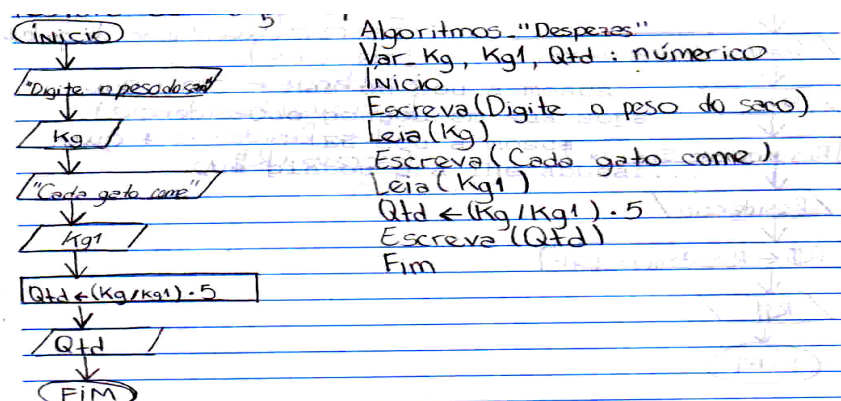 5
INICIO
"Digite o peso do saco"
Kg
"Cada gato come"
Kg1
Qtd ← (Kg/Kg1) . 5
Qtd
FIM
Algoritmos_"Despezes"
Var_ Kg, Kg1, Qtd : númerico
INICIO
Escreva(Digite o peso do saco)
Leia(Kg)
Escreva(Cada gato come)
Leia(Kg1)
Qtd ← (Kg/Kg1) . 5
Escreva(Qtd)
Fim